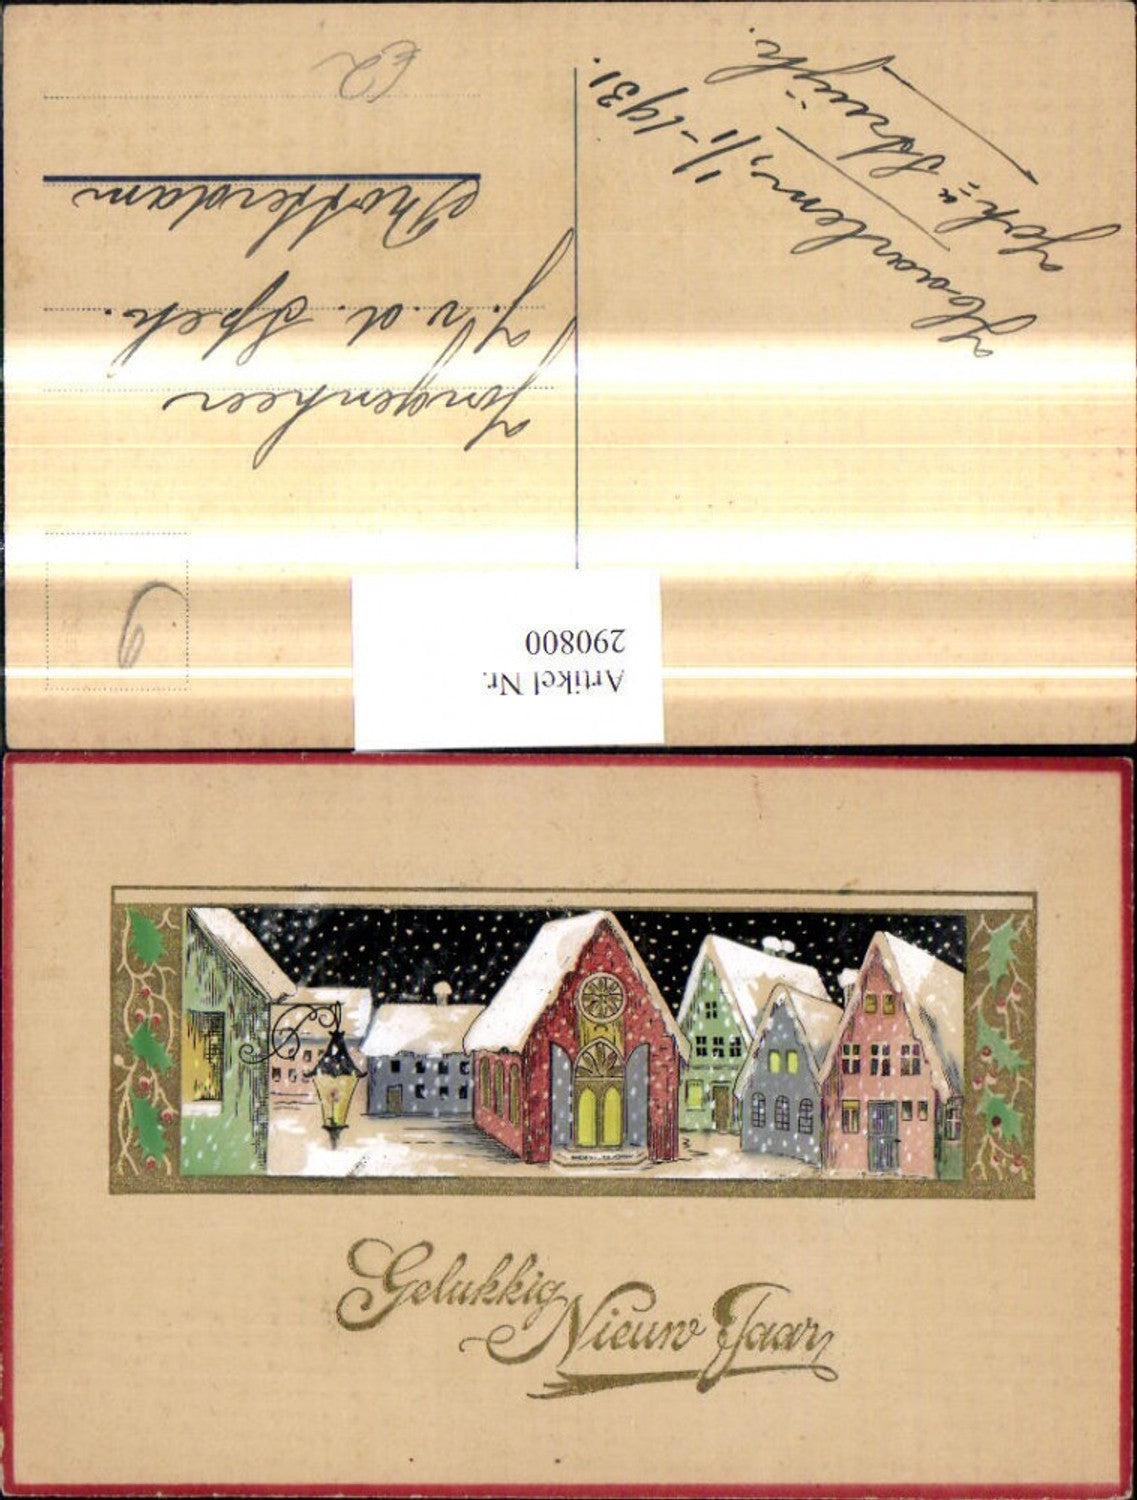 Jongenheer
J. v. d. Spek.
Rotterdam
Haarlem, 1/1-1931.
Artikel Nr.
290800
Gelukkig
Nieuw Jaar